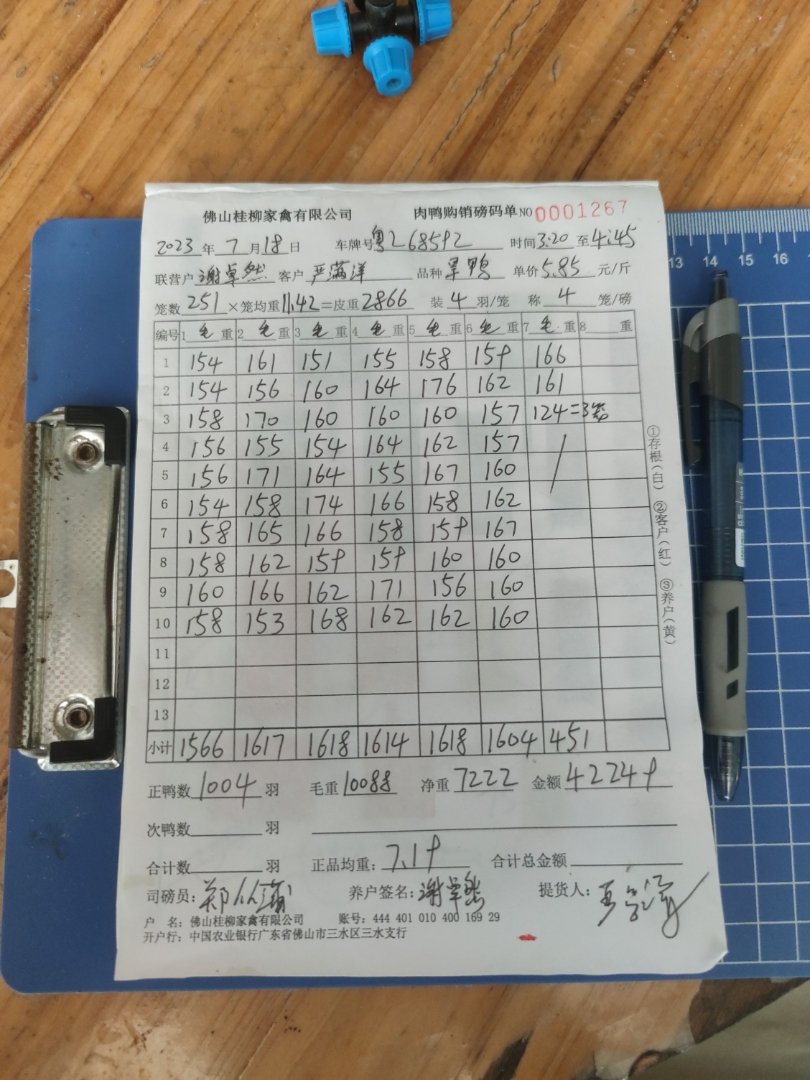 佛山桂柳家禽有限公司 肉鸭购销磅码单 NO 0001267
2023年7月18日 车牌号 粤Z68592 时间3:20至4:45
联营户 谢卓然 客户 严满洋 品种 旱鸭 单价5.85元/斤
笼数251×笼均重11.42=皮重2866 装4羽/笼 称4笼/磅
编号 1毛重 2毛重 3毛重 4毛重 5毛重 6毛重 7毛重 8 重
1 154 161 151 155 158 159 166
2 154 156 160 164 176 162 161
3 158 170 160 160 160 157 124=3笼
4 156 155 154 164 162 157 /
5 156 171 164 155 167 160
6 154 158 174 166 158 162
7 158 165 166 158 159 167
8 158 162 159 159 160 160
9 160 166 162 171 156 160
10 158 153 168 162 162 160
11
12
13
小计 1566 1617 1618 1614 1618 1604 451
正鸭数1004羽 毛重10088 净重7222 金额42249
次鸭数 羽
合计数 羽 正品均重:7.19 合计总金额
司磅员: 养户签名:谢卓然 提货人:
户 名:佛山桂柳家禽有限公司 账号:444 401 010 400 169 29
开户行:中国农业银行广东省佛山市三水区三水支行
①存根(白) ②客户(红) ③养户(黄)
13 14 15 16